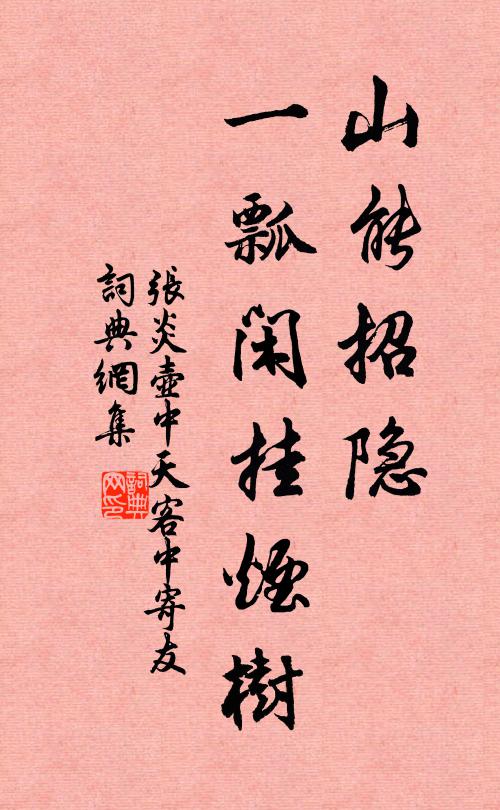 山能招隐
一瓢闲挂煙樹
張炎壺中天客中寄友
詞典網集
詞典
网印